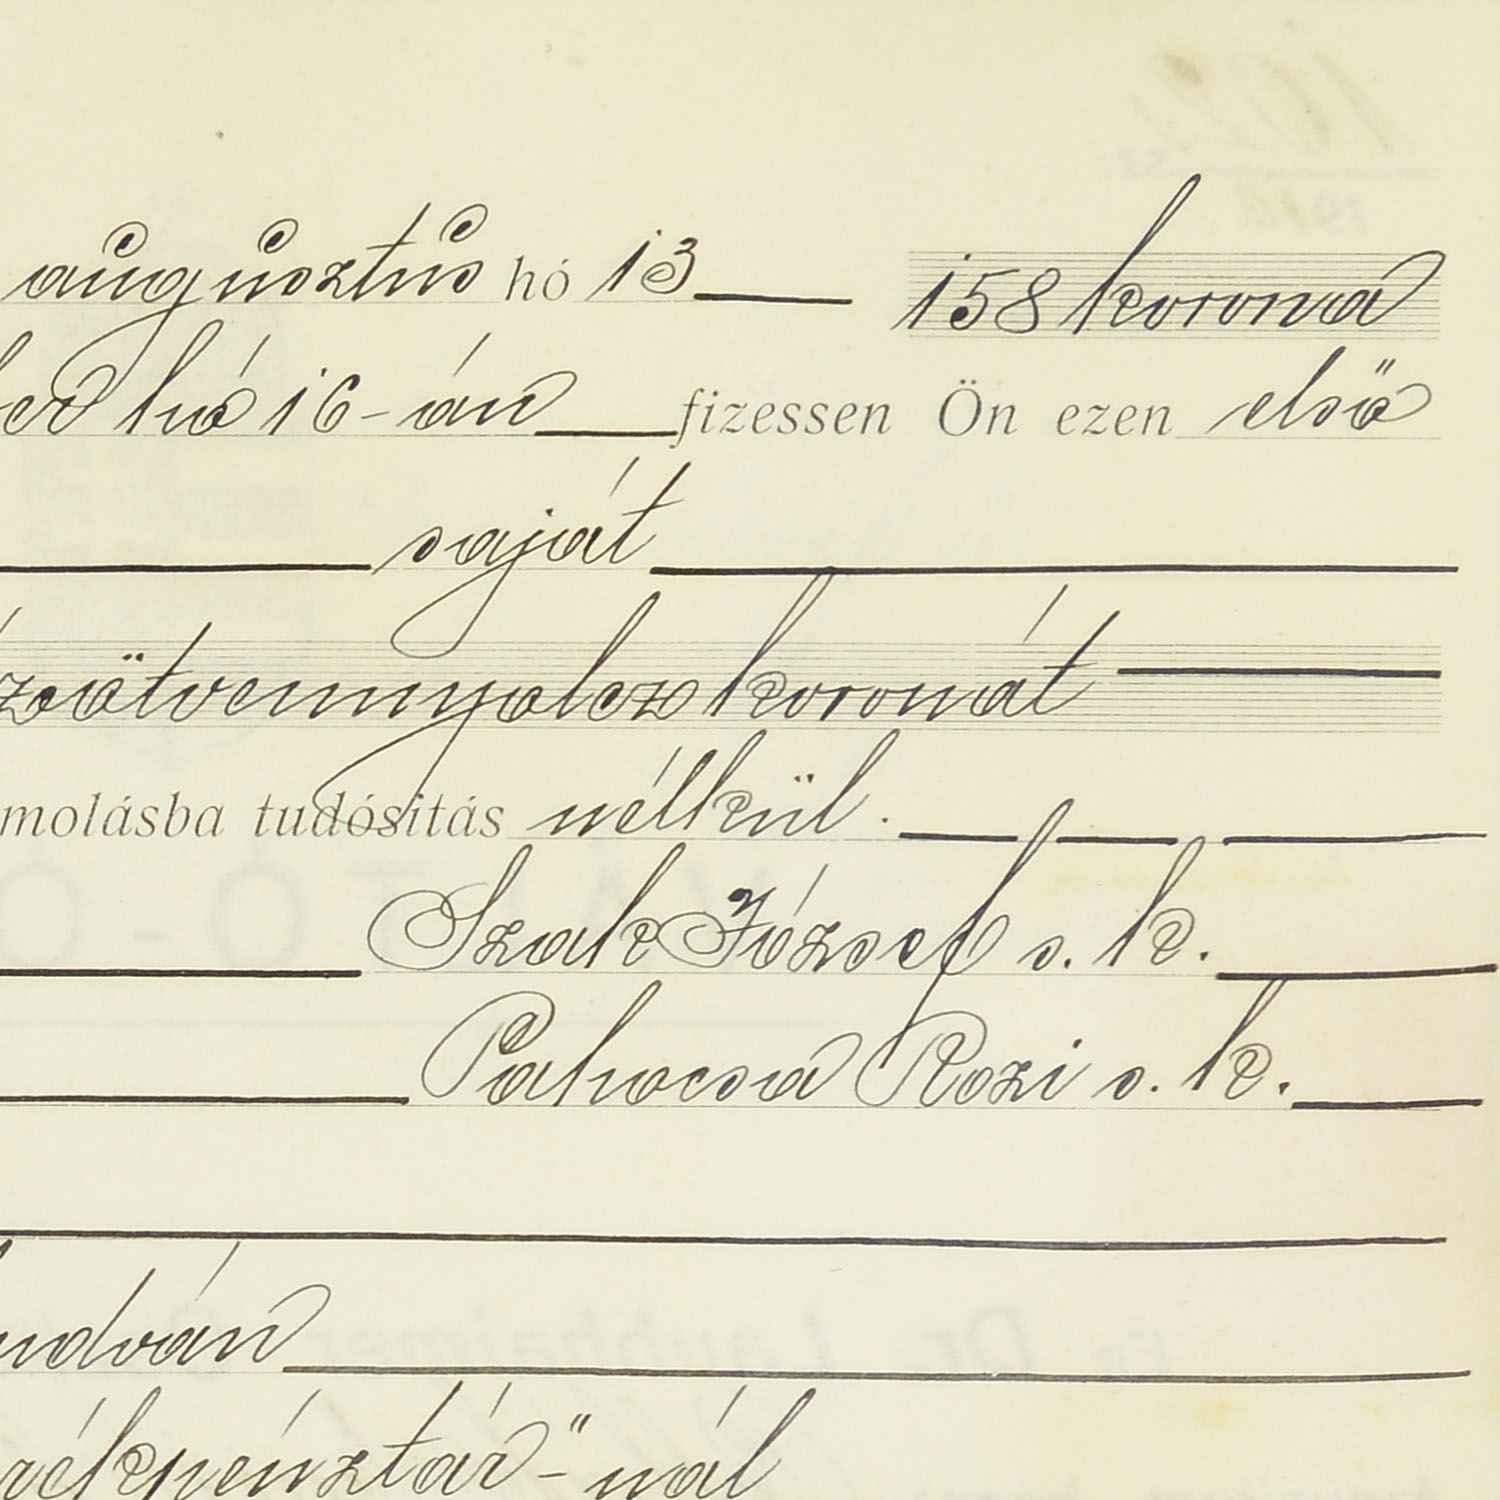 augusztus hó 13 158 korona
hó 16-án fizessen Ön ezen első
saját
zötvennyolcz koronát
molásba tudósítás nélkül.
Szak József s. k.
Pahocsa Rozi s. k.
udván
rékpénztár"-nál